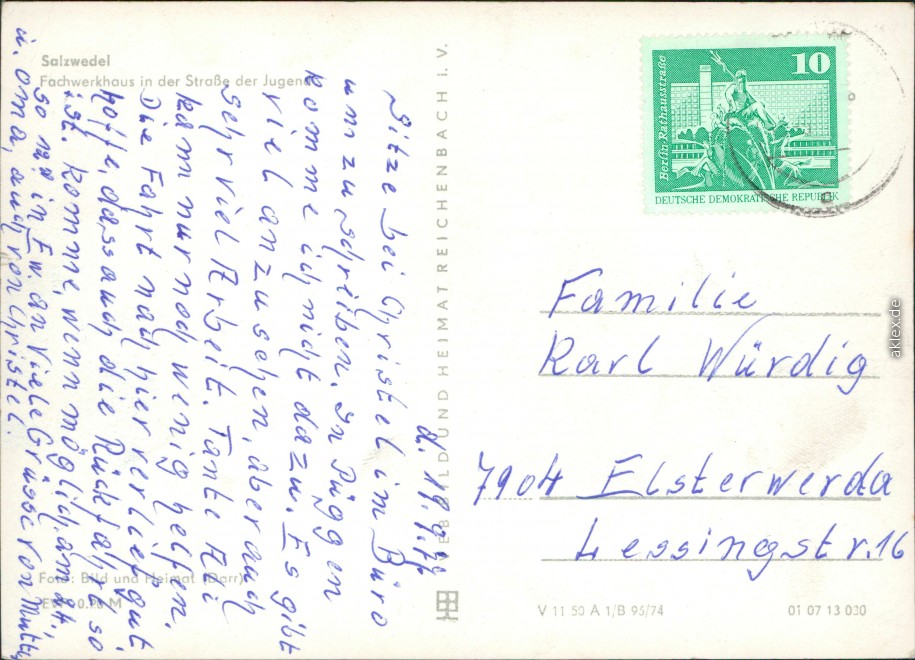 Salzwedel
Fachwerkhaus in der Straße der Jugend
d. 19.9.76
Sitze bei Christel im Büro
um zu schreiben. In Püggen
komme ich nicht dazu. Es gibt
viel anzusehen, aber auch
sehr viel Arbeit. Tante Ali
kann nur noch wenig helfen.
Die Fahrt nach hier verlief gut
hoffe, dass auch die Rückfahrt so
ist. Komme, wenn möglich am
so in E'w. an Viele Grüsse von Mutti
u. Oma, auch von Christel.
Foto: Bild und Heimat (Darr)
EVP 0.20 M
BILD UND HEIMAT REICHENBACH i. V.
V 11 50 A 1/B 95/74
01 07 13 030
Berlin-Rathausstraße
10
DEUTSCHE DEMOKRATISCHE REPUBLIK
Familie
Karl Würdig
7904 Elsterwerda
Lessingstr. 16
aklex.de